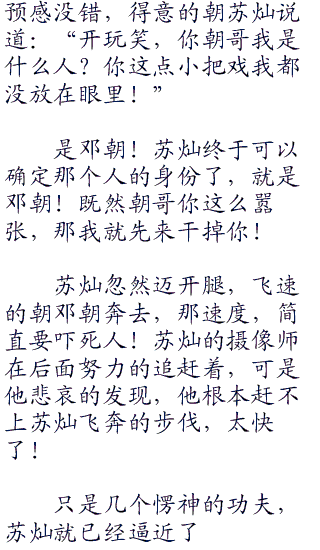 预感没错，得意的朝苏灿说
道：“开玩笑，你朝哥我是
什么人？你这点小把戏我都
没放在眼里！”
是邓朝！苏灿终于可以
确定那个人的身份了，就是
邓朝！既然朝哥你这么嚣
张，那我就先来干掉你！
苏灿忽然迈开腿，飞速
的朝邓朝奔去，那速度，简
直要吓死人！苏灿的摄像师
在后面努力的追赶着，可是
他悲哀的发现，他根本赶不
上苏灿飞奔的步伐，太快
了！
只是几个愣神的功夫，
苏灿就已经逼近了